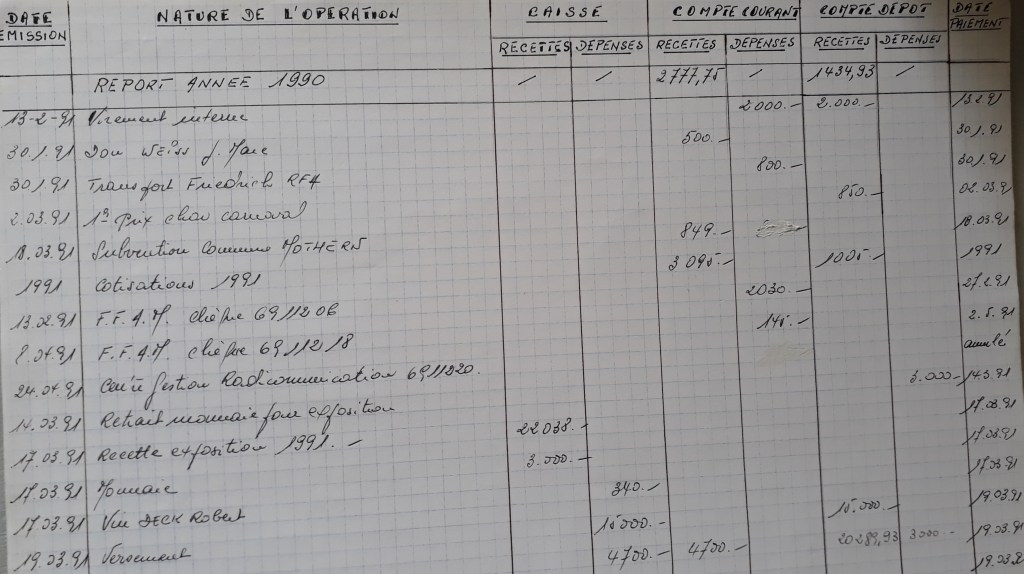 DATE EMISSION NATURE DE L'OPERATION CAISSE COMPTE COURANT COMPTE DEPOT DATE PAIEMENT
RECETTES DEPENSES RECETTES DEPENSES RECETTES DEPENSES
REPORT ANNEE 1990 / / 2777,75 / 1434,93 /
13-2-91 Virement interne 2000.- 2.000.- 13.2.91
30.1.91 Don WEISS J. Marc 500.- 30.1.91
30.1.91 Transfert Friedrich RFA 800.- 30.1.91
2.03.91 1er prix char carnaval 850.- 02.03.91
18.03.91 Subvention Commune MOTHERN 849.- 18.03.91
1991 Cotisations 1991 3095.- 1005.- 1991
13.02.91 F.F.A.M. chèque 6911206 2030.- 27.2.91
8.04.91 F.F.A.M. chèque 6911218 145.- 2.5.91
24.04.91 Centre Gestion Radiocommunication 6911220. annulé
14.03.91 Retrait monnaie pour exposition 3.000- 14.3.91
17.03.91 Recette exposition 1991.- 22038.- 17.03.91
17.03.91 Monnaie 3.000.- 17.03.91
17.03.91 Vin DECK Robert 340.- 17.03.91
19.03.91 Versement 15000.- 15.000.- 19.03.91
4700.- 4700.- 20289,93 3000.- 19.03.91
19.03.91